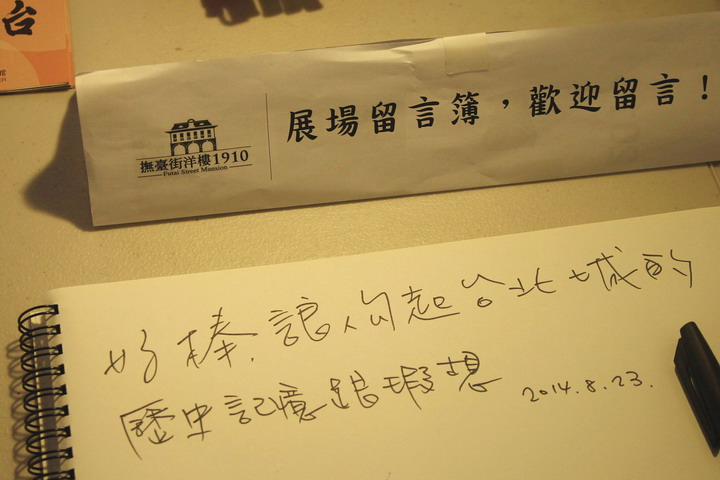 台
撫臺街洋樓1910
Futai Street Mansion
展場留言簿，歡迎留言！
好棒,讓人勾起台北城的
歷史記憶跟瑕想 2014.8.23.